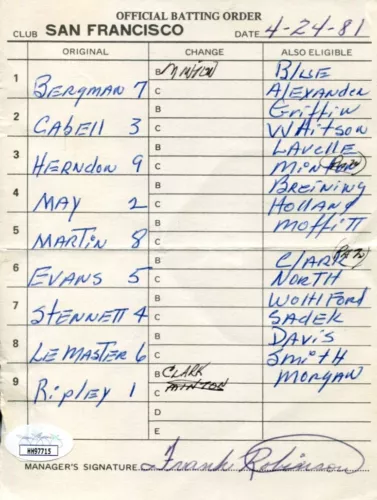 OFFICIAL BATTING ORDER
CLUB SAN FRANCISCO DATE 4-24-81
ORIGINAL CHANGE ALSO ELIGIBLE
1 Bergman 7 B Minton C
2 Cabell 3 B C
3 Herndon 9 B C
4 May 2 B C
5 Martin 8 B C
6 Evans 5 B C
7 Stennett 4 B C
8 LeMaster 6 B C
9 Ripley 1 B Clark C Minton
D
E
Blue
Alexander
Griffin
Whitson
Lavelle
Minton
Breining
Holland
Moffitt
Clark
North
Wohlford
Sadek
Davis
Smith
Morgan
JSA
HH97715
MANAGER'S SIGNATURE Frank Robinson